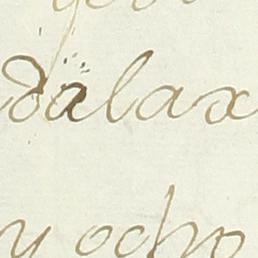 dälax
y ocho